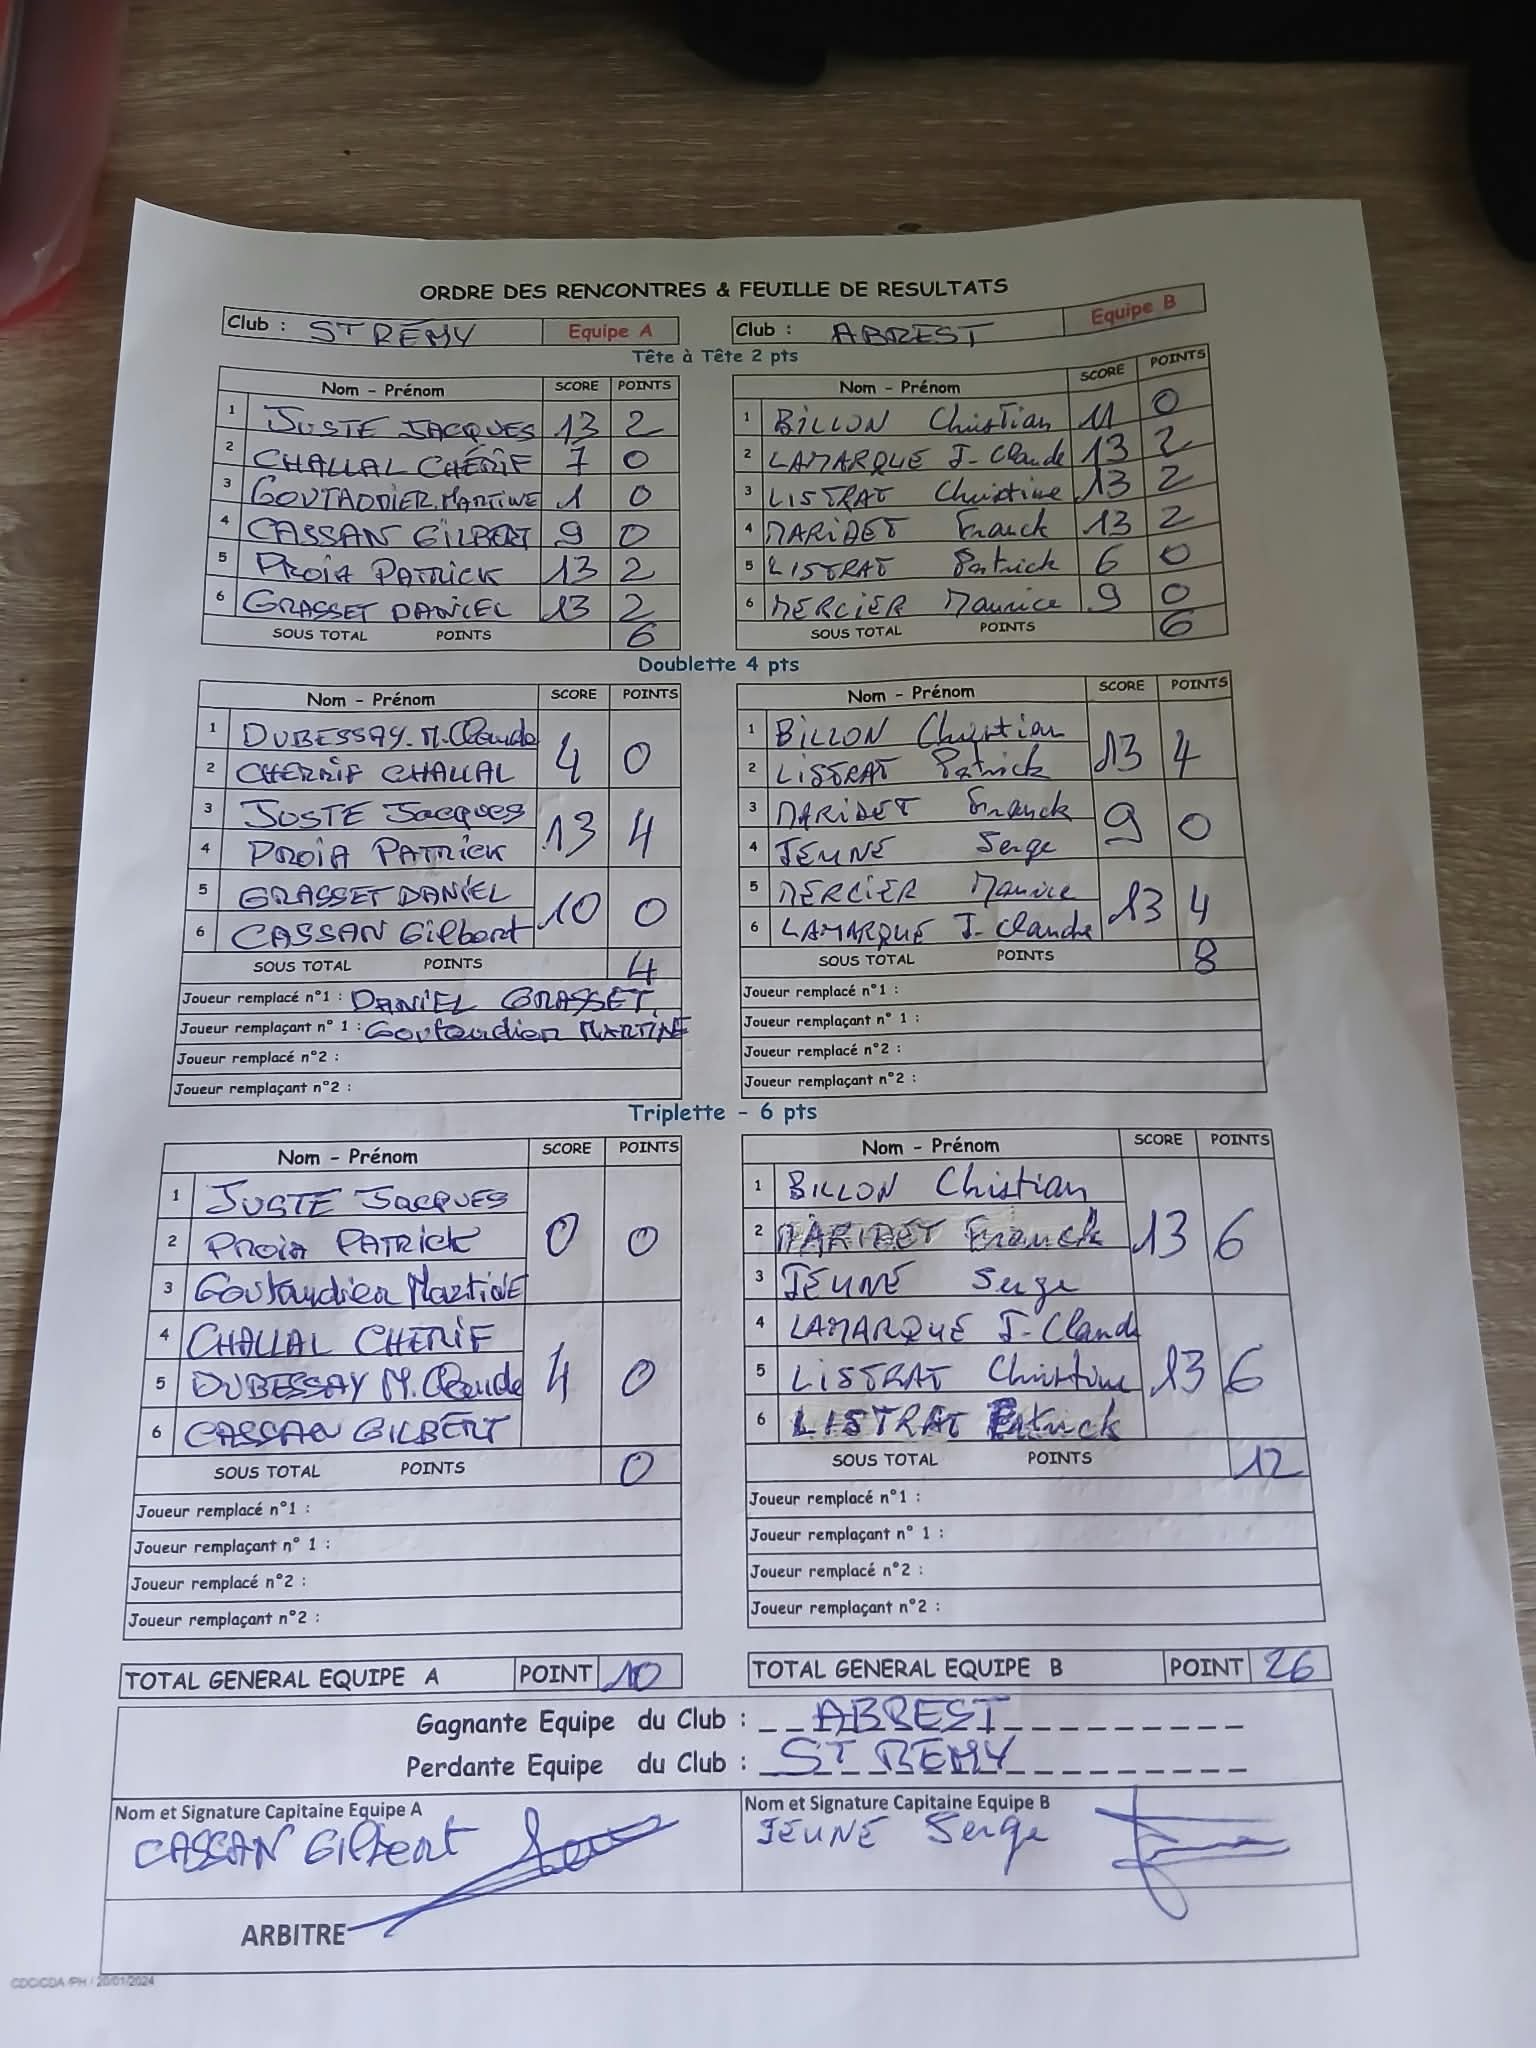 ORDRE DES RENCONTRES & FEUILLE DE RESULTATS
Club : ST RÉMY Equipe A
Club : ABREST Equipe B
Tête à Tête 2 pts
Nom - Prénom SCORE POINTS
1 JUSTE JACQUES 13 2
2 CHALLAL CHÉRIF 7 0
3 GOUTAUDIER.MARTINE 1 0
4 CASSAN GILBERT 9 0
5 PROIA PATRICK 13 2
6 GRASSET DANIEL 13 2
SOUS TOTAL POINTS 6
Nom - Prénom SCORE POINTS
1 BILLON Christian 11 0
2 LAMARQUE J-Claude 13 2
3 LISTRAT Christine 13 2
4 MARIDET Franck 13 2
5 LISTRAT Patrick 6 0
6 MERCIER Maurice 9 0
SOUS TOTAL POINTS 6
Doublette 4 pts
Nom - Prénom SCORE POINTS
1 DUBESSAY. M.Claude
2 CHERRIF CHALLAL 4 0
3 JUSTE Jacques
4 PROIA PATRICK 13 4
5 GRASSET DANIEL
6 CASSAN Gilbert 10 0
SOUS TOTAL POINTS 4
Joueur remplacé n°1 : DANIEL GRASSET.
Joueur remplaçant n° 1 : Goutaudier MARTINE
Joueur remplacé n°2 :
Joueur remplaçant n°2 :
Nom - Prénom SCORE POINTS
1 BILLON Christian
2 LISTRAT Patrick 13 4
3 MARIDET Franck
4 JEUNE Serge 9 0
5 MERCIER Maurice
6 LAMARQUE J-Claude 13 4
SOUS TOTAL POINTS 8
Joueur remplacé n°1 :
Joueur remplaçant n° 1 :
Joueur remplacé n°2 :
Joueur remplaçant n°2 :
Triplette - 6 pts
Nom - Prénom SCORE POINTS
1 JUSTE Jacques
2 PROIA PATRICK 0 0
3 Goutaudier Martine
4 CHALLAL CHERIF
5 DUBESSAY M.Claude 4 0
6 CASSAN GILBERT
SOUS TOTAL POINTS 0
Joueur remplacé n°1 :
Joueur remplaçant n° 1 :
Joueur remplacé n°2 :
Joueur remplaçant n°2 :
Nom - Prénom SCORE POINTS
1 BILLON Christian
2 MARIDET Franck 13 6
3 JEUNE Serge
4 LAMARQUE J-Claude
5 LISTRAT Christine 13 6
6 LISTRAT Patrick
SOUS TOTAL POINTS 12
Joueur remplacé n°1 :
Joueur remplaçant n° 1 :
Joueur remplacé n°2 :
Joueur remplaçant n°2 :
TOTAL GENERAL EQUIPE A POINT 10
TOTAL GENERAL EQUIPE B POINT 26
Gagnante Equipe du Club : ABREST
Perdante Equipe du Club : ST REMY
Nom et Signature Capitaine Equipe A
CASSAN Gilbert
Nom et Signature Capitaine Equipe B
JEUNE Serge
ARBITRE
CDC/CDA /PH / 20/01/2024